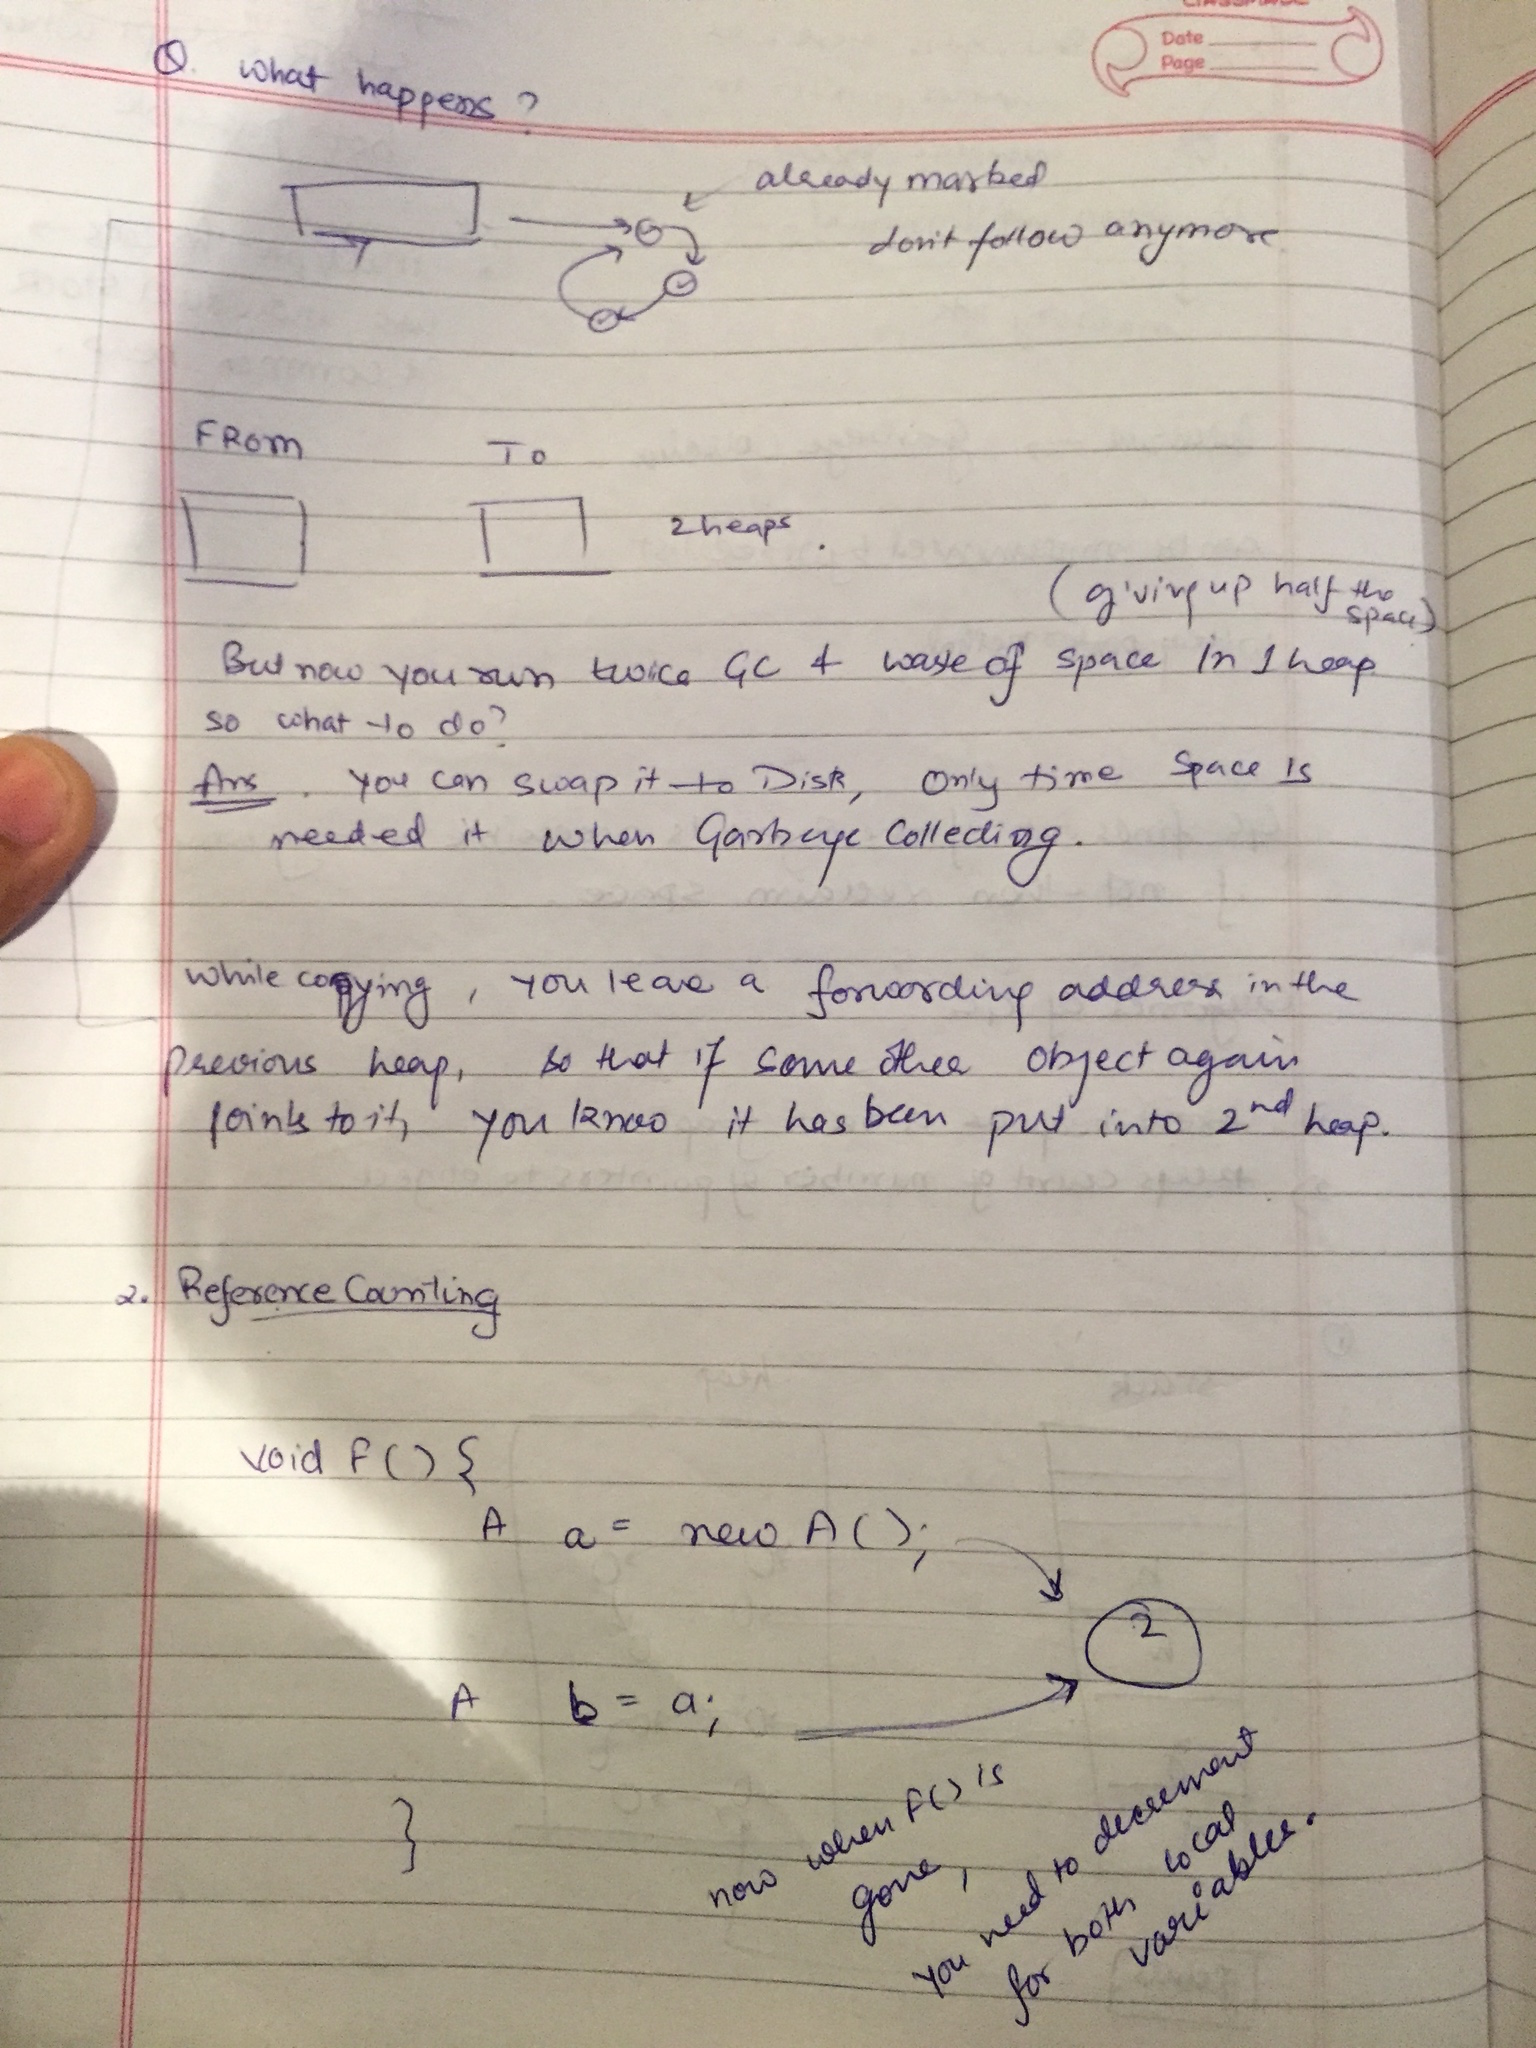 CLASSMATE
Date
Page
Q. What happens?
already marked
don't follow anymore
FROM
To
2 heaps.
(giving up half the space)
But now you run twice GC & waste of space in 1 heap
so what to do?
Ans. You can swap it to Disk, Only time space is
needed it when Garbage Collecting.
While copying, you leave a forwarding address in the
previous heap, so that if some other object again
points to it, you know it has been put into 2nd heap.
2. Reference Counting
void F() {
A a = new A();
2
A b = a;
}
now when F() is
gone,
you need to decrement
for both local
variables.